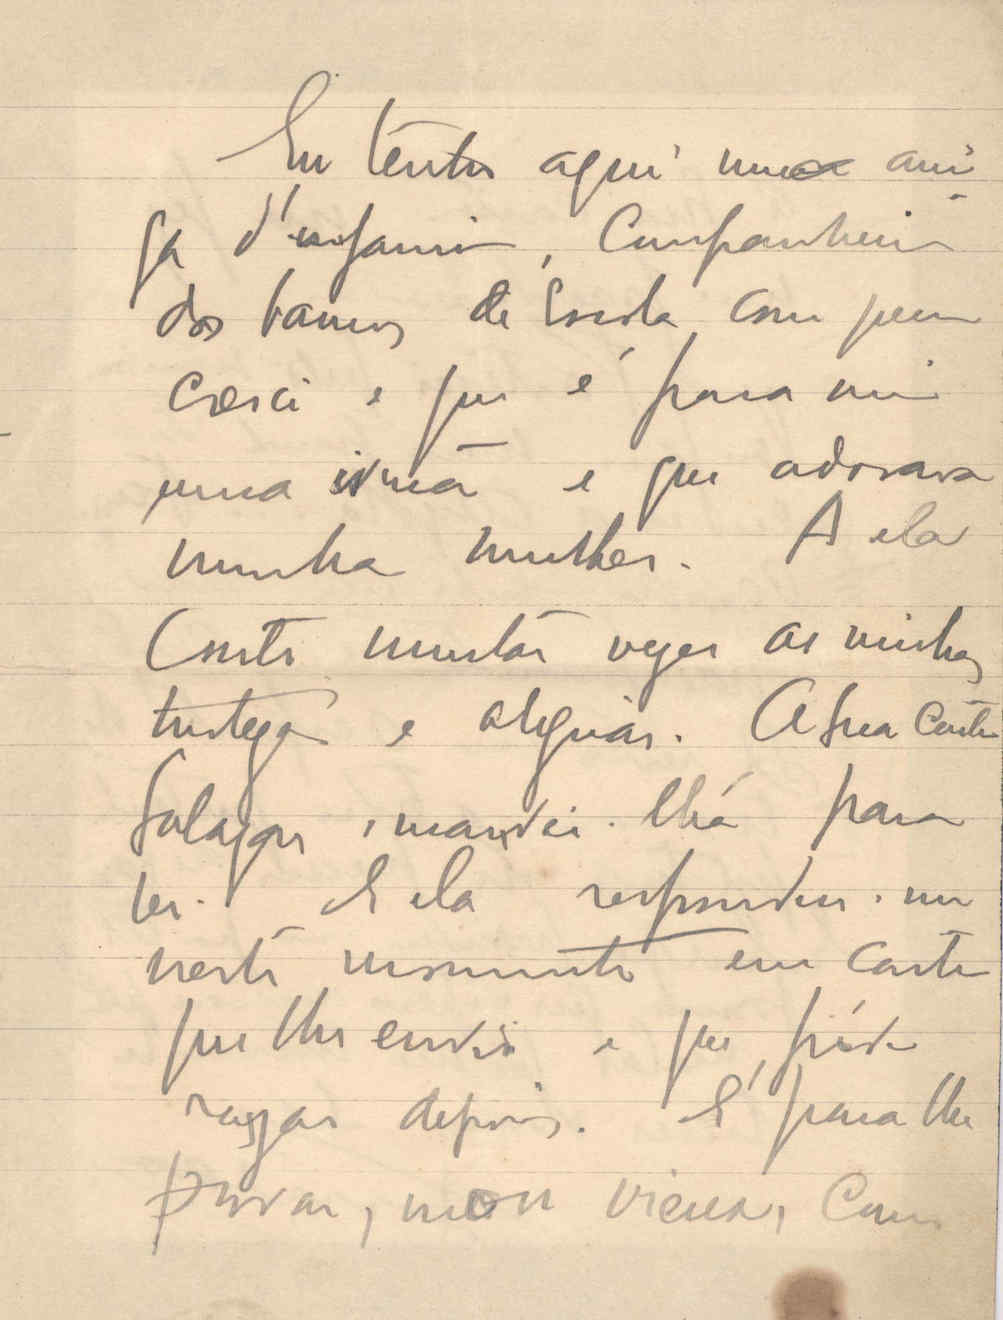 Eu tenho aqui uma ami
ga d'infancia, Companheira
dos bancos de Escola, com quem
cresci e que é para mim
uma irmã e que adorava
minha mulher. A ela
Conto muitas vezes as minhas
tristezas e alegrias. A sua carta
Salazar, mandei-lh'a para
ler. E ela respondeu-me
neste momento em carta
que lhe envio e que póde
rasgar depois. E' para lhe
provar, mon vieux, Com